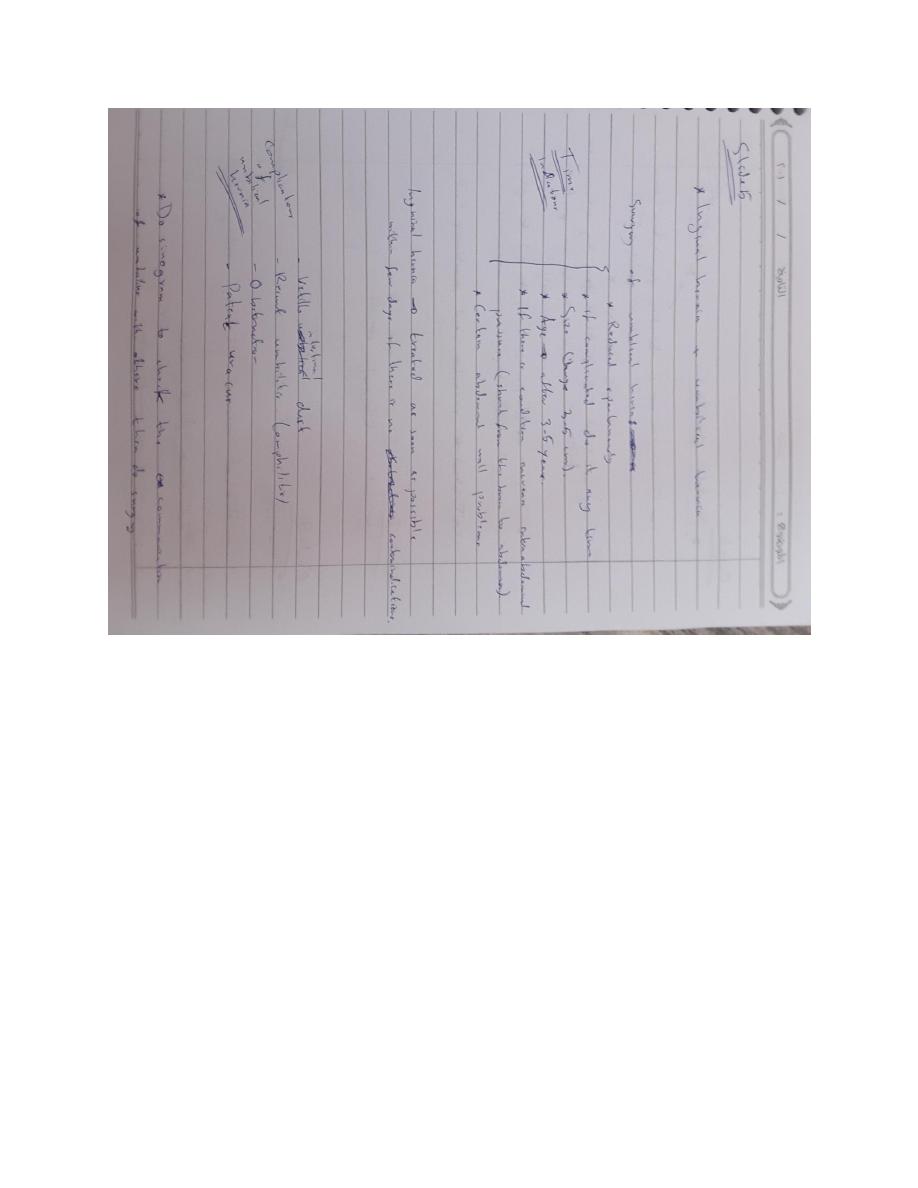 التاريخ / / ٢٠١
الموضوع :
Slide 5
* Inguinal hernia & umbilical hernia
Surgery of umbilical hernia
* Reduced spontaneously
* if complicated do it any time
* Size (large 3,5 cm).
Time
Indications
* Age → after 3-5 year.
* If there is condition increase intraabdominal
pressure (shunt from the brain to abdomen).
* Certain abdominal wall problems
Inguinal hernia → treated as soon as possible
within few days if there is no contraindications.
- Vitello intestinal duct
Complications
of
umbilical
hernia
- Recurrent umbilitis (omphilitis)
- Obstruction
- Patent uracus
* Do sinogram to check the communication
of umbilicus with others then do surgery